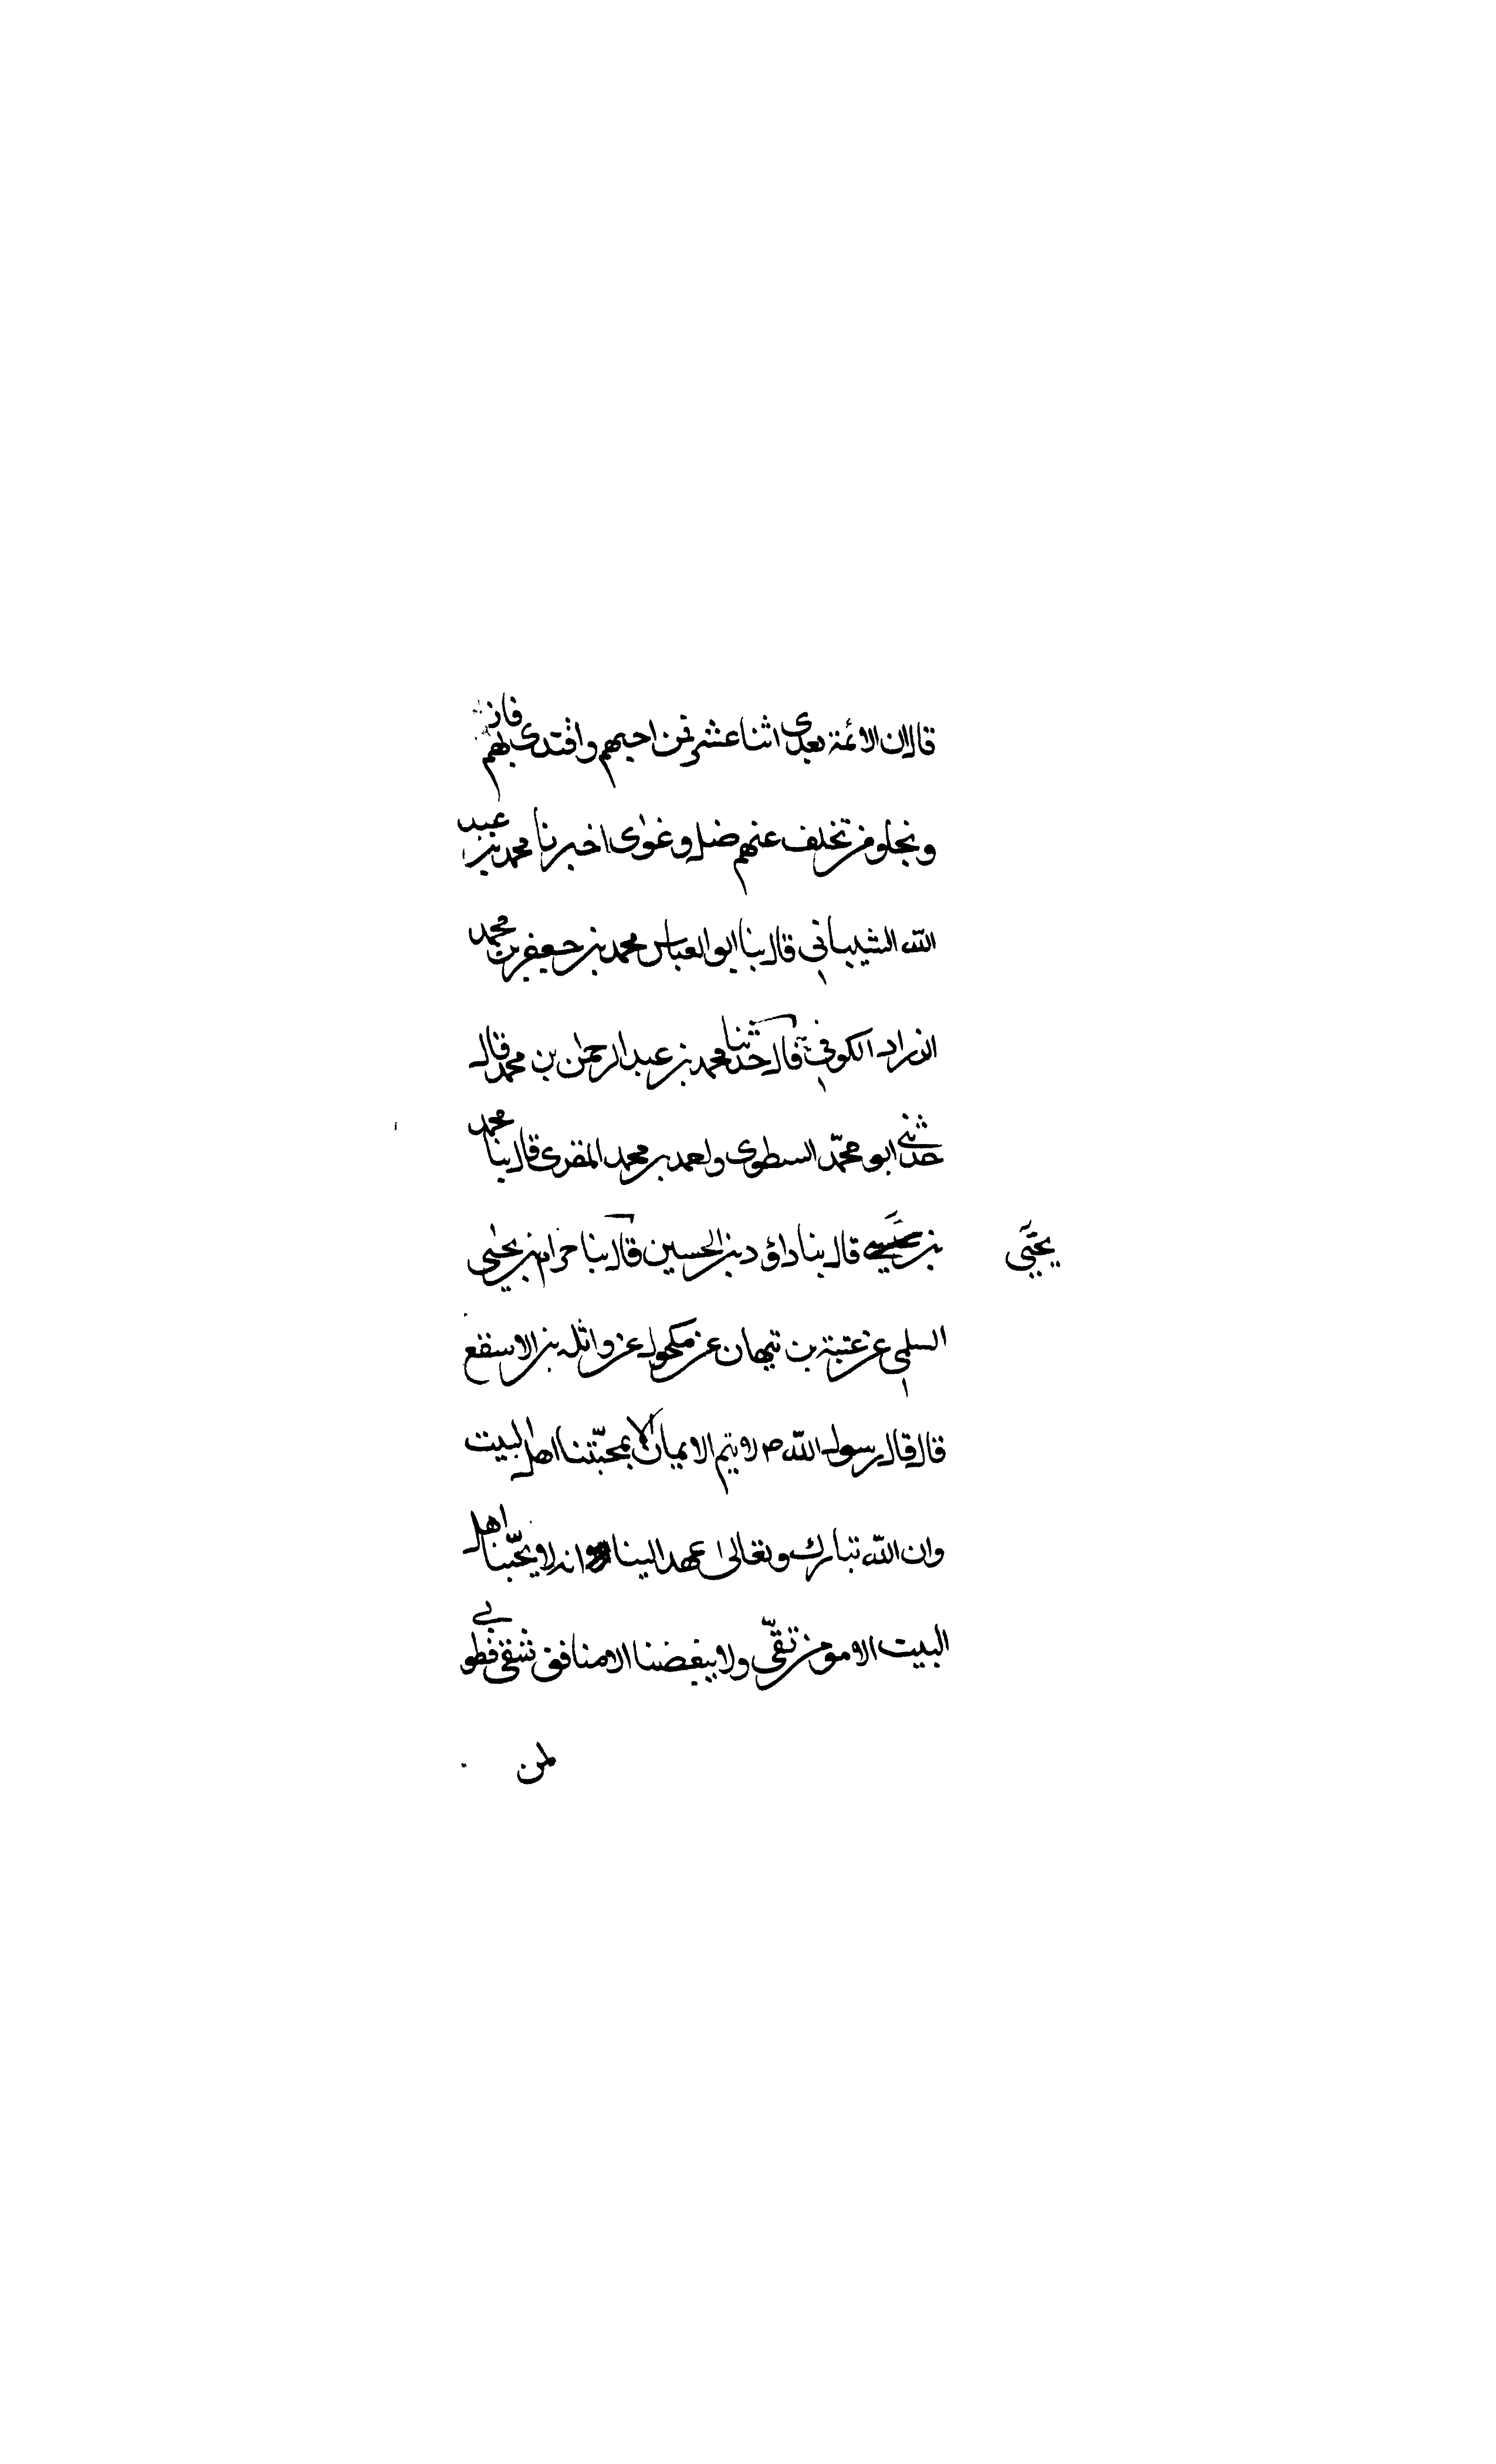 قال ان الائمة بعدى اثنا عشر فمن احبهم واقتدى بهم فاز
ونجا ومن تخلف عنهم ضل وغوى اخبرنا محمد بن عبد
الله الشيبانى قال بنا ابو العباس محمد بن جعفر بن محمد
الزراد الكوفى قال حدثنا محمد بن عبد الرحمن بن محمد قال
حدثنى ابو محمّد السطوى واحمد بن محمد المقرى قال بنا محمد
بن يحيى قال بنا داؤد بن الحسين قال بنا حزام بن يحيى
السلمى عن عتبة بن تيهان عن مكحول عن واثله بن الاسقع
قال قال رسول الله ص لا يتم الايمان الا بمحبّتنا اهل البيت
وان الله تبارك وتعالى عهد الينا انه لا يحبّنا اهل
البيت الا مومن تقىّ ولا يبغضنا الا منافق شقى فطوبى
لمن